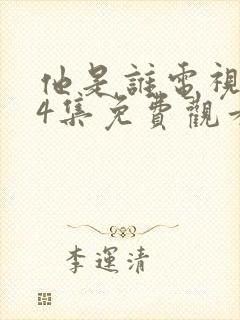 他是誰電視
4集免費觀看
李運清